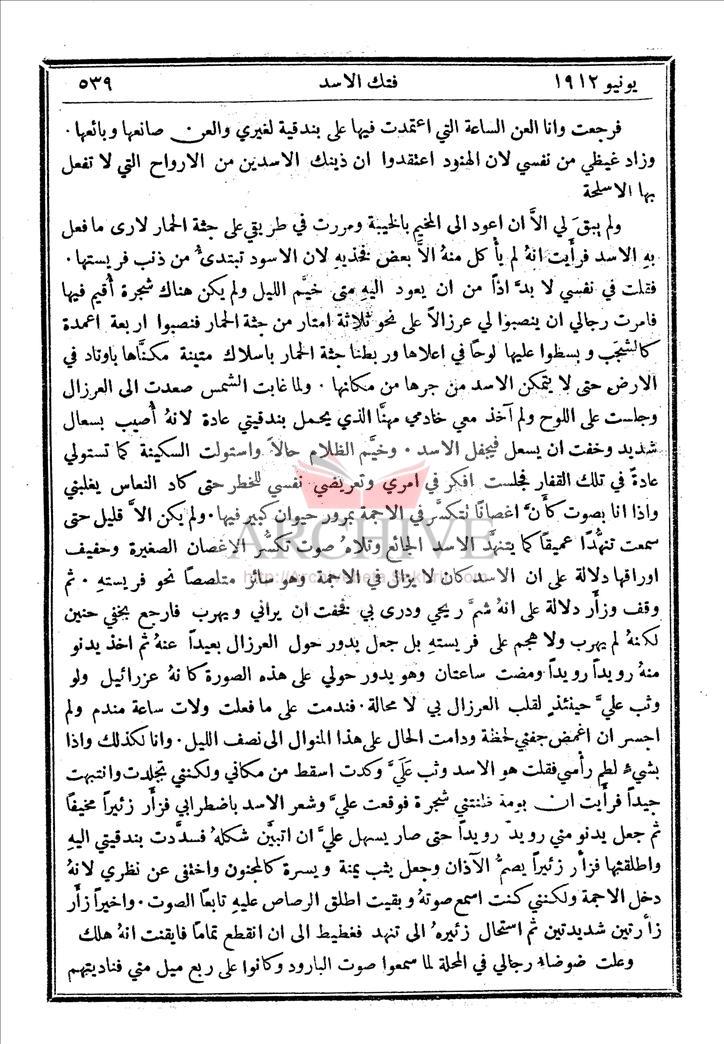 يونيو ١٩١٢ فتك الاسد ٥٣٩
فرجعت وانا العن الساعة التي اعتمدت فيها على بندقية لغيري والعن صانعها وبائعها ٠
وزاد غيظي من نفسي لان الهنود اعتقدوا ان ذينك الاسدين من الارواح التي لا تفعل
بها الاسلحة
ولم يبقَ لي الاَّ ان اعود الى المخيم بالخيبة ومررت في طريقي على جثة الحمار لارى ما فعل
بهِ الاسد فرأيت انهُ لم يأكل منهُ الاَّ بعض فخذيهِ لان الاسود تبتدئُ من ذنب فريستها ٠
فقلت في نفسي لا بدَّ اذاً من ان يعود اليهِ متى خيَّم الليل ولم يكن هناك شجرة أُقيم فيها
فامرت رجالي ان ينصبوا لي عرزالاً على نحو ثلاثة امتار من جثة الحمار فنصبوا اربعة اعمدة
كالشجَب وبسطوا عليها لوحاً في اعلاها وربطنا جثة الحمار باسلاك متينة مكنَّاها باوتاد في
الارض حتى لا يتمكن الاسد من جرها من مكانها ٠ ولما غابت الشمس صعدت الى العرزال
وجلست على اللوح ولم آخذ معي خادمي مهنَّا الذي يحمل بندقيتي عادة لانهُ أُصيب بسعال
شديد وخفت ان يسعل فيجفل الاسد ٠ وخيَّم الظلام حالاً واستولت السكينة كما تستولي
عادةً في تلك القفار فجلست افكر في امري وتعريضي نفسي للخطر حتى كاد النعاس يغلبني
واذا انا بصوت كأَنَّ اغصاناً تتكسَّر في الاجمة بمرور حيوان كبير فيها ٠ ولم يكن الاَّ قليل حتى
سمعت تنهُّدًا عميقاً كما يتنهَّد الاسد الجائع وتلاهُ صوت تكسُّر الاغصان الصغيرة وحفيف
اوراقها دلالة على ان الاسد كان لا يزال في الاجمة وهو سائر متلصصاً نحو فريستهِ ٠ ثم
وقف وزأَر دلالة على انهُ شمَّ ريحي ودرى بي فخفت ان يراني ويهرب فارجع بخفي حنين
لكنهُ لم يهرب ولا هجم على فريستهِ بل جعل يدور حول العرزال بعيداً عنهُ ثم اخذ يدنو
منهُ رويداً رويداً ومضت ساعتان وهو يدور حولي على هذه الصورة كانهُ عزرائيل ولو
وثب عليَّ حينئذٍ لقلب العرزال بي لا محالة ٠ فندمت على ما فعلت ولات ساعة مندم ولم
اجسر ان اغمض جفني لحظة ودامت الحال على هذا المنوال الى نصف الليل ٠ وانا كذلك واذا
بشيءٍ لطم رأسي فقلت هو الاسد وثب عَلَيَّ وكدت اسقط من مكاني ولكنني تجلدت وانتبهت
جيداً فرأَيت ان بومة ظنتني شجرة فوقعت عليَّ وشعر الاسد باضطرابي فزأَر زئيراً مخيفاً
ثم جعل يدنو مني رويداً رويداً حتى صار يسهل عليَّ ان اتبيَّن شكلهُ فسدَّدت بندقيتي اليهِ
واطلقتها فزأر زئيراً يصمُّ الآذان وجعل يثب يمنة ويسرة كالمجنون واختفى عن نظري لانهُ
دخل الاجمة ولكنني كنت اسمع صوتهُ وبقيت اطلق الرصاص عليهِ تابعاً الصوت ٠ واخيراً زأَر
زأرتين شديدتين ثم استحال زئيرهُ الى تنهد فغطيط الى ان انقطع تماماً فايقنت انهُ هلك
وعلت ضوضاء رجالي في المحلة لما سمعوا صوت البارود وكانوا على ربع ميل مني فناديتهم
ARCHIVE